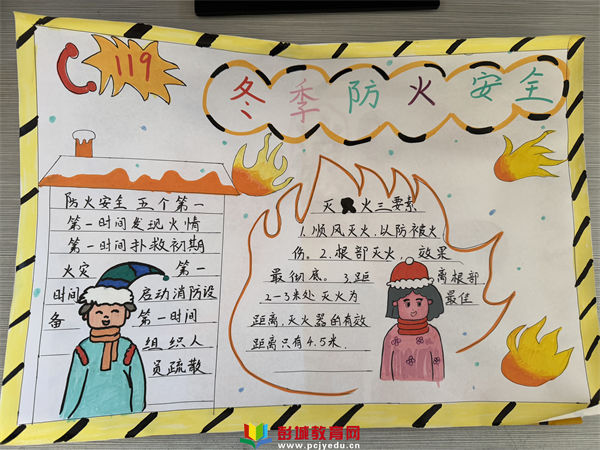 119
冬季防火安全
防火安全 五个第一
第一时间发现火情
第一时间扑救初期
火灾 第一
时间 启动消防设
备 第一时间
组织人
员疏散
灭火三要素
1.顺风灭火,以防被火
伤。2.根部灭火,效果
最彻底。3.距离根部
2-3米处灭火为最佳
距离,灭火器的有效
距离只有4.5米.
彭城教育网
www.pcjyedu.cn